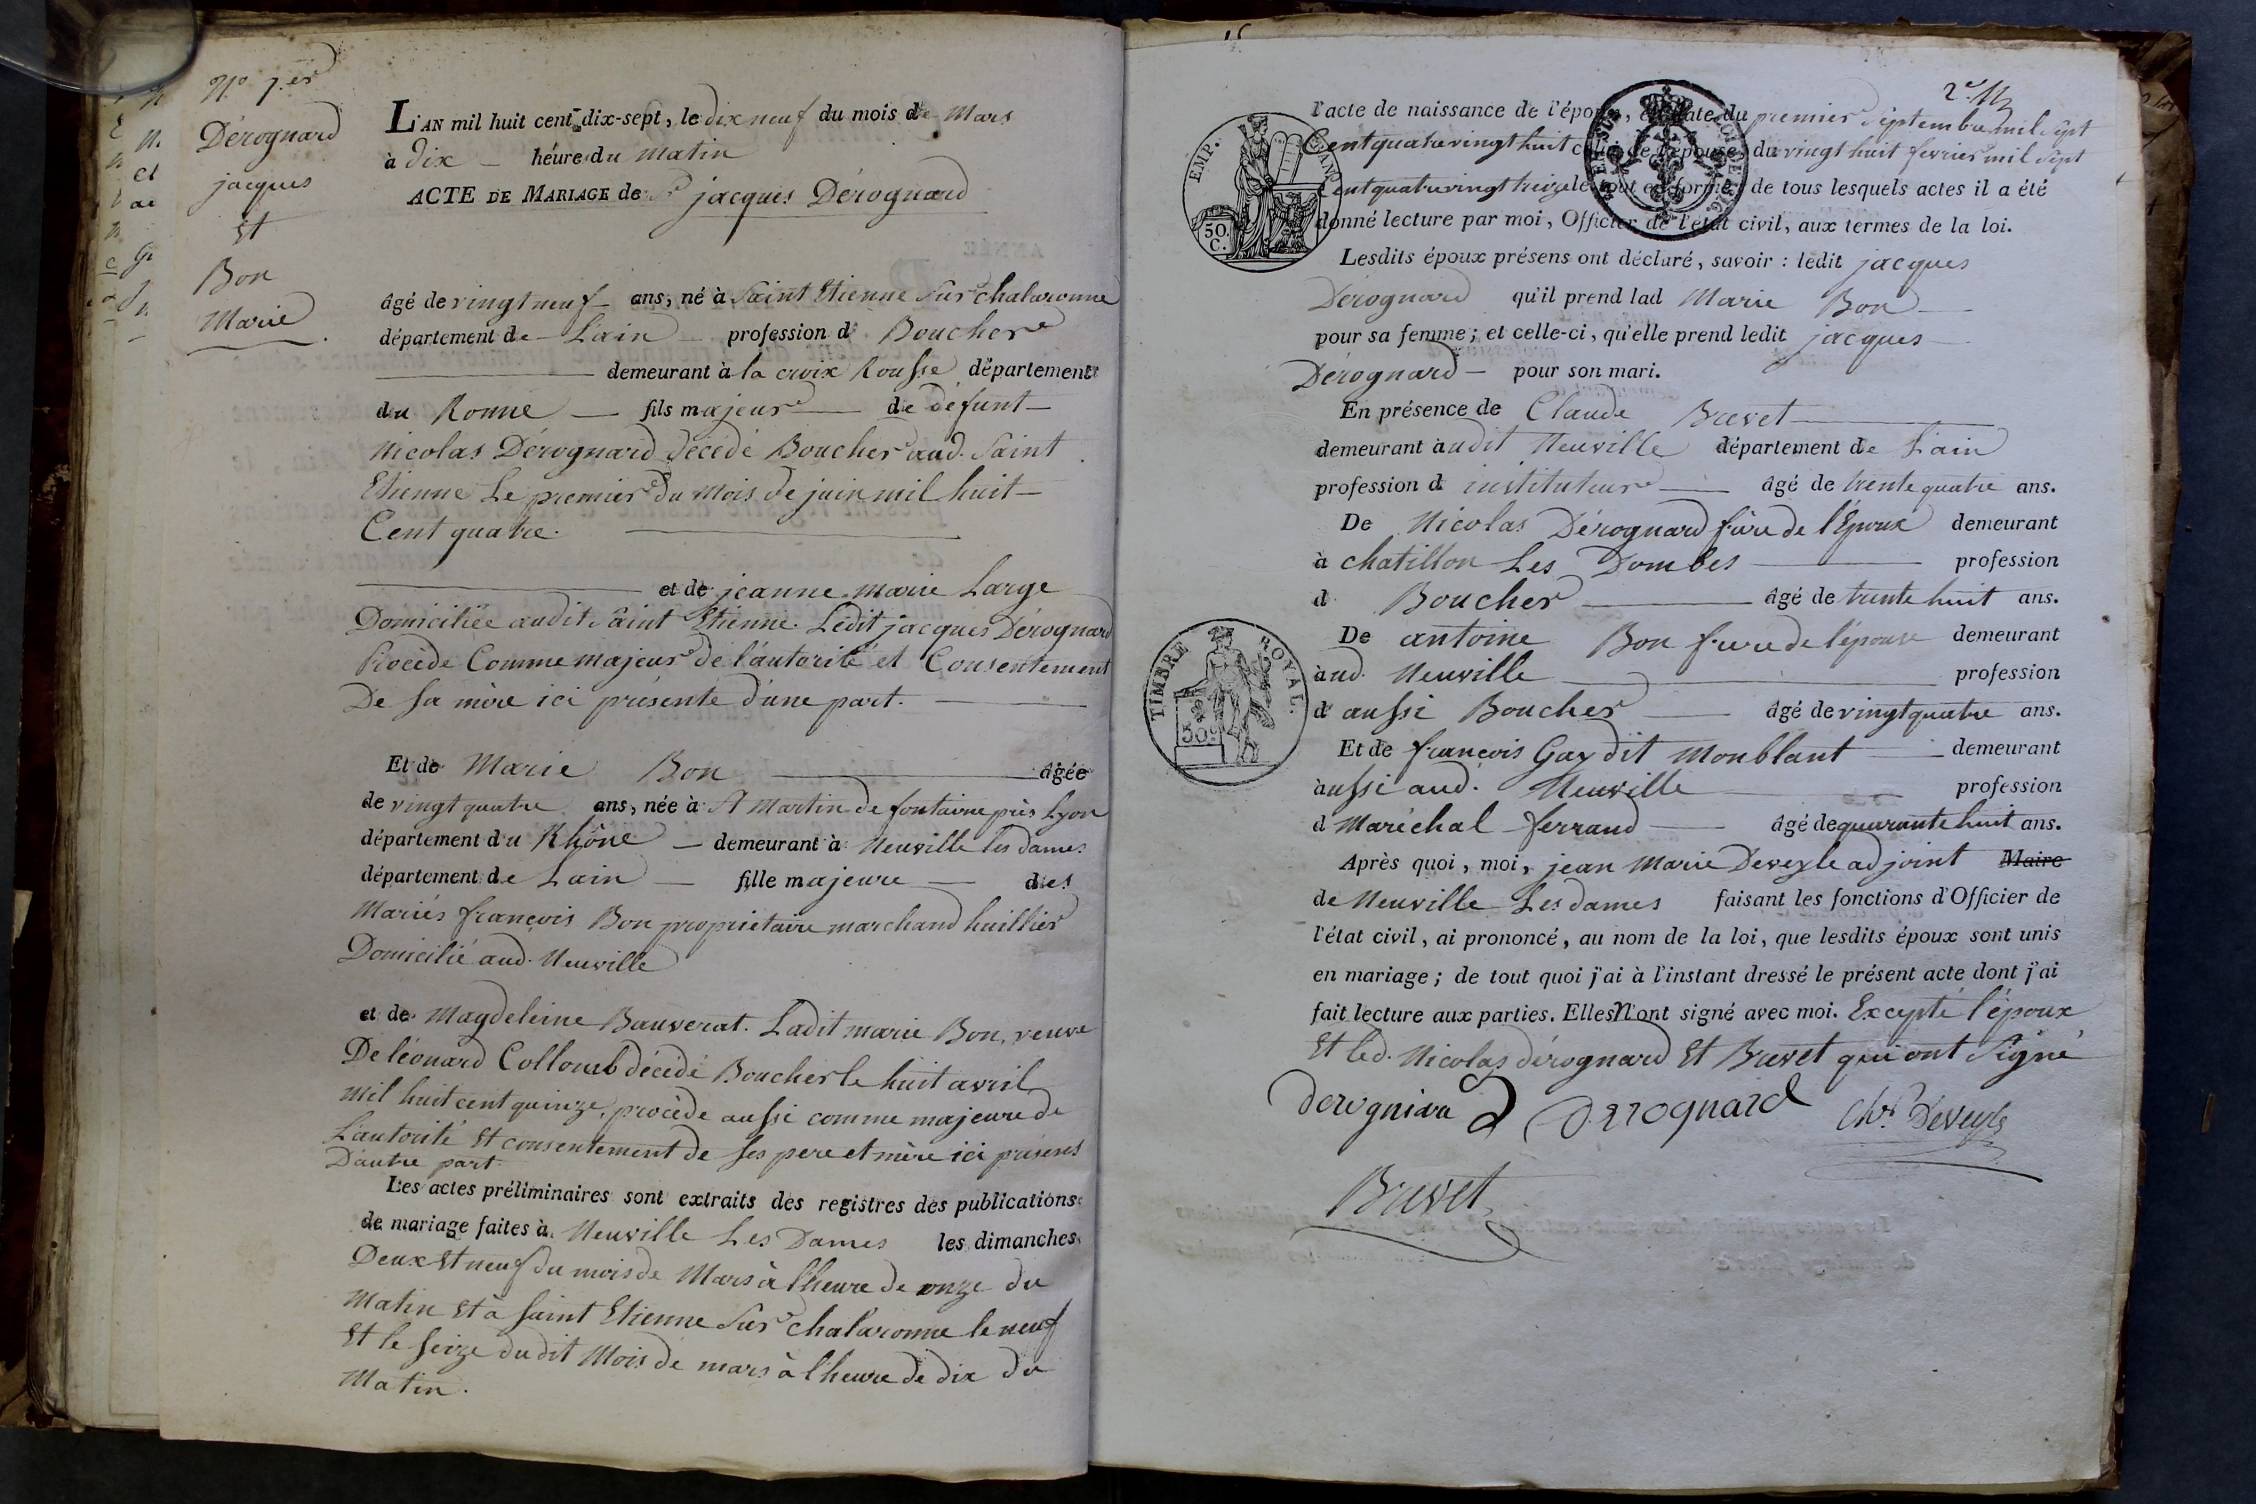 N.º 1.er
Dérognard
jacques
Et
Bon
Marie
L'AN mil huit cent dix-sept, le dix neuf du mois de Mars
à dix heure du matin
ACTE DE MARIAGE de jacques Dérognard
âgé de vingt neuf ans, né à Saint Etienne Sur chalaronne
département de L'ain profession de Boucher
demeurant à la croix Rousse département
du Ronne fils majeur de défunt
Nicolas Dérognard décédé Boucher aud. Saint
Etienne Le premier du Mois de juin mil huit
Cent quatre.
et de jeanne Marie Large
Domiciliée audit Saint Etienne. Ledit jacques Dérognard
Procède Comme majeur de l'autorité et Consentement
De Sa mère ici présente d'une part.
Et de Marie Bon âgée
de vingt quatre ans, née à St Martin de fontaine près Lyon
département du Rhône demeurant à Neuville les dames
département de Lain fille majeure des
Mariés françois Bon propriétaire marchand huillier
Domicilié aud. Neuville
et de Magdeleine Bauverat. Ladit marie Bon, veuve
De léonard Colloub décédé Boucher le huit avril
mil huit cent quinze, procède aussi comme majeure de
L'autorité et consentement de ses pere et mère ici présens
D'autre part.
Les actes préliminaires sont extraits des registres des publications
de mariage faites à Neuville Les Dames les dimanches
Deux Et neuf du mois de Mars à l'heure de onze du
Matin Et à Saint Etienne Sur chalaronne le neuf
Et le Seize dudit Mois de mars à l'heure de dix du
Matin.
2.e
l'acte de naissance de l'époux, en date du premier Septembre mil Sept
Cent quatre vingt huit celui de l'épouse, du vingt huit fevrier mil Sept
Cent quatre vingt treize le tout en forme; de tous lesquels actes il a été
donné lecture par moi, Officier de l'état civil, aux termes de la loi.
Lesdits époux présens ont déclaré, savoir : ledit jacques
Dérognard qu'il prend lad Marie Bon
pour sa femme; et celle-ci, qu'elle prend ledit jacques
Dérognard pour son mari.
En présence de Claude Brevet
demeurant audit Neuville département de L'ain
profession d instituteur âgé de trente quatre ans.
De Nicolas Dérognard frère de l'Epoux demeurant
à chatillon Les Dombes profession
d Boucher âgé de trente huit ans.
De antoine Bon frere de l'épouse demeurant
aud. Neuville profession
d' aussi Boucher âgé de vingt quatre ans.
Et de françois Gay dit Monblant demeurant
aussi aud. Neuville profession
d Maréchal ferrand âgé de quarante huit ans.
Après quoi, moi, jean Marie Deveyle adjoint Maire
de Neuville Les dames faisant les fonctions d'Officier de
l'état civil, ai prononcé, au nom de la loi, que lesdits époux sont unis
en mariage; de tout quoi j'ai à l'instant dressé le présent acte dont j'ai
fait lecture aux parties. Elles n'ont signé avec moi. Excepté l'époux
Et led. Nicolas dérognard Et Brevet qui ont Signé
Derognard Ch.r Deveyle
Brevet
EMP.
50.
C.
TIMBRE ROYAL.
50.c